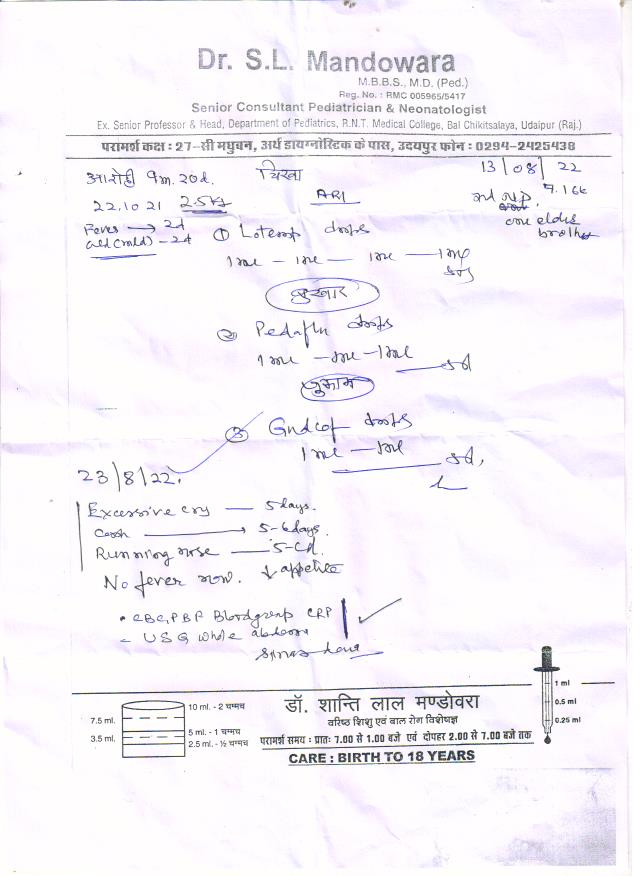 Dr. S.L. Mandowara
M.B.B.S., M.D. (Ped.)
Reg. No. : RMC 005965/5417
Senior Consultant Pediatrician & Neonatologist
Ex. Senior Professor & Head, Department of Pediatrics, R.N.T. Medical College, Bal Chikitsalaya, Udaipur (Raj.)
परामर्श कक्ष : 27-सी मधुवन, अर्थ डायग्नोस्टिक के पास, उदयपुर फोन : 0294-2425438
13/08/22
आरोही 9m. 20d.
22.10.21 ARI
Fever → 2d
① drops
1ml - 1ml - 1ml
one elder
brother
बुखार
② drops
1ml - 1ml - 1ml 5d
जुकाम
③ drops
1ml - 1ml 5d.
23/8/22.
Excessive cry — 5 days.
→ 5-6 days.
Running nose —
No fever now. ↓ appetite
• CBC, PBF Blood group CRP
- USG whole abdomen
10 ml. - 2 चम्मच
7.5 ml.
5 ml. - 1 चम्मच
3.5 ml.
2.5 ml. - ½ चम्मच
डॉ. शान्ति लाल मण्डोवरा
वरिष्ठ शिशु एवं बाल रोग विशेषज्ञ
परामर्श समय : प्रातः 7.00 से 1.00 बजे एवं दोपहर 2.00 से 7.00 बजे तक
CARE : BIRTH TO 18 YEARS
1 ml
0.5 ml
0.25 ml